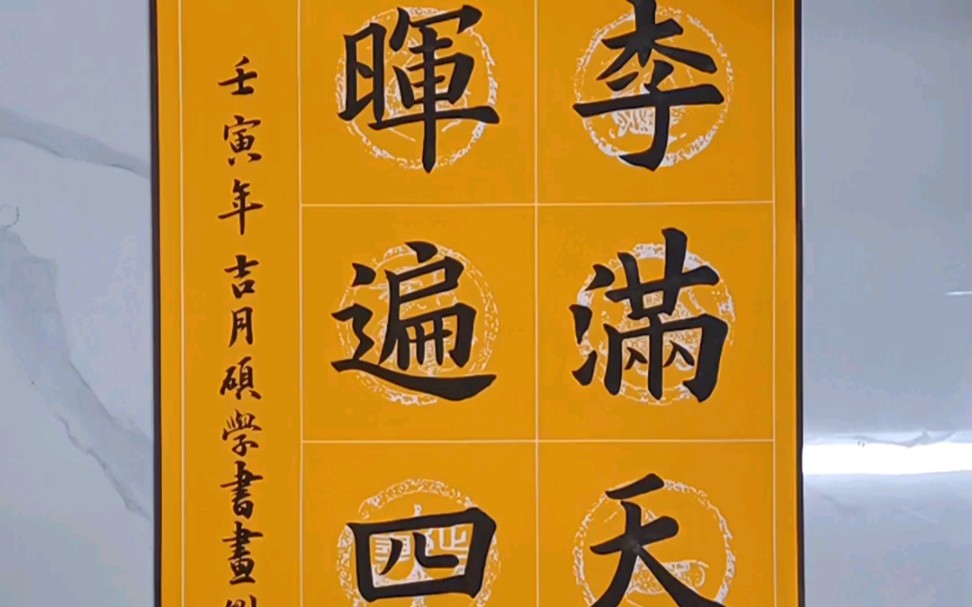 李滿天
暉遍四
壬寅年吉月碩學書畫